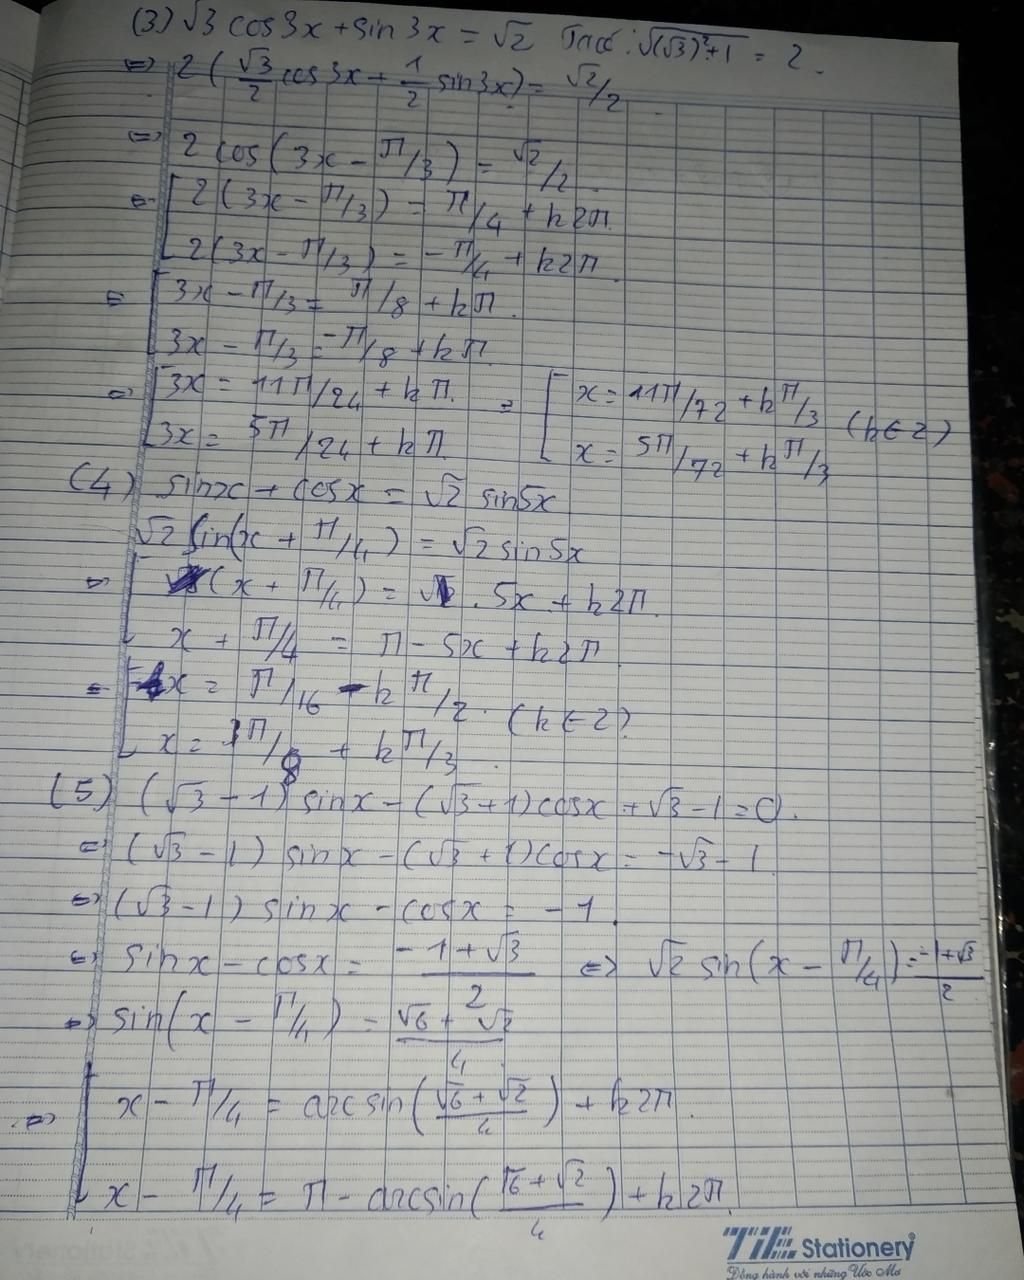 (3) √3 cos3x + sin 3x = √2 Ta có: √((√3)²+1) = 2.
⇔ 2 (√3/2 cos 3x + 1/2 sin3x) = √2/2
⇔ 2 cos(3x - π/3) = √2/2
⇔ [ 2(3x - π/3) = π/4 + k2π.
2(3x - π/3) = -π/4 + k2π
⇔ [ 3x - π/3 = π/8 + kπ.
3x - π/3 = -π/8 + kπ.
⇔ [ 3x = 11π/24 + kπ. ⇔ [ x = 11π/72 + kπ/3 (k∈Z)
3x = 5π/24 + kπ. x = 5π/72 + kπ/3
(4) sinx + cosx = √2 sin5x
√2 sin(x + π/4) = √2 sin5x
⇔ [ (x + π/4) = 5x + k2π.
x + π/4 = π - 5x + k2π
⇔ [ x = π/16 - kπ/2. (k∈Z)
x = π/8 + kπ/3.
(5) (√3 - 1) sinx - (√3 + 1) cosx + √3 - 1 = 0.
⇔ (√3 - 1) sinx - (√3 + 1) cosx = -√3 - 1
⇔ (√3 - 1) sinx - cosx = -1.
⇔ sinx - cosx = (-1+√3)/2 ⇔ √2 sin(x - π/4) = (-1+√3)/2
⇔ sin(x - π/4) = (√6 + √2)/4
⇔ [ x - π/4 = arcsin((√6 + √2)/4) + k2π.
x - π/4 = π - arcsin((√6 + √2)/4) + k2π.
TiE Stationery
Đồng hành với những Ước Mơ